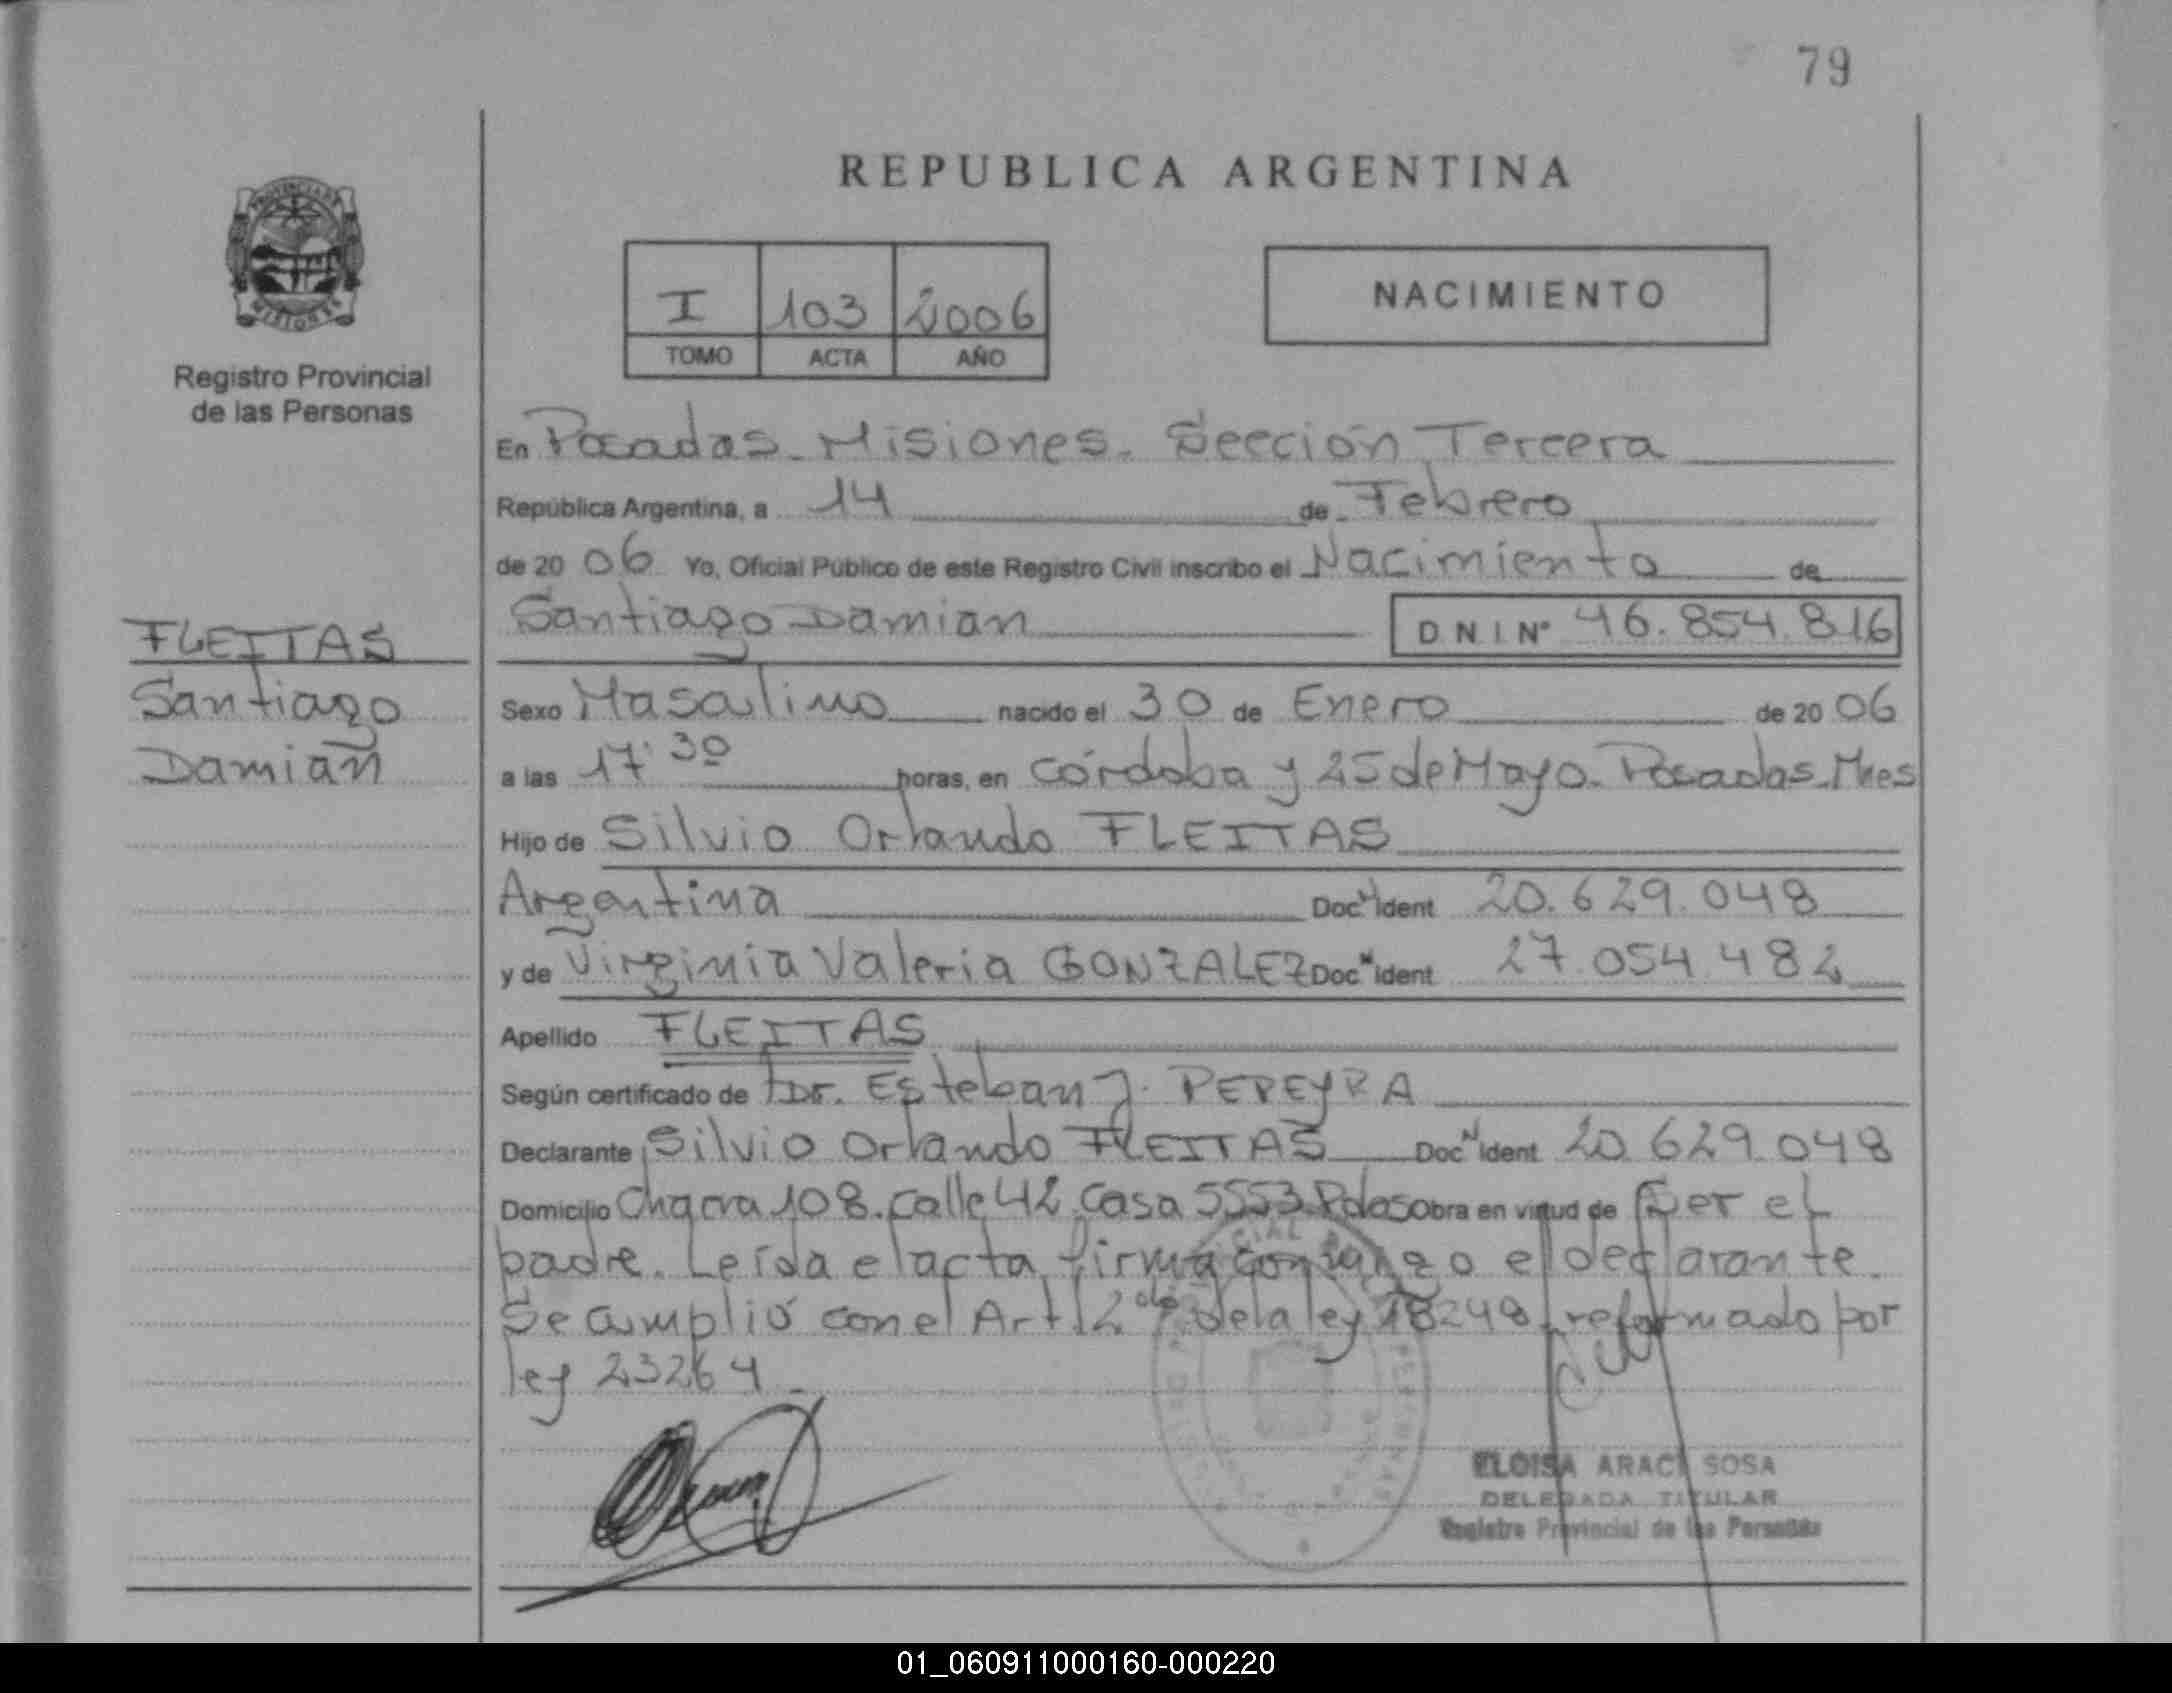 79
REPUBLICA ARGENTINA
PROVINCIA DE
MISIONES
Registro Provincial
de las Personas
I 103 2006
TOMO ACTA AÑO
NACIMIENTO
En Posadas - Misiones. Sección Tercera
República Argentina, a 14 de Febrero
de 20 06 Yo, Oficial Público de este Registro Civil inscribo el Nacimiento de
Santiago Damian DNI Nº 46.854.816
FLEITAS
Santiago
Damián
Sexo Masculino nacido el 30 de Enero de 20 06
a las 17:30 horas, en Córdoba y 25 de Mayo - Posadas - Mnes
Hijo de Silvio Orlando FLEITAS
Argentina Doc Ident 20.629.048
y de Virginia Valeria GONZALEZ Doc Ident 27.054.482
Apellido FLEITAS
Según certificado de Dr. Esteban J. PEREYRA
Declarante Silvio Orlando FLEITAS Doc Ident 20.629.048
Domicilio Chacra 108. Calle 42. Casa 5553. Pdas Obra en virtud de Ser el
padre. Leída el acta, firma conmigo el declarante.
Se cumplió con el Art 2 de la ley 18248 reformado por
ley 23264
ELOISA ARACI SOSA
DELEGADA TITULAR
Registro Provincial de las Personas
01_060911000160-000220